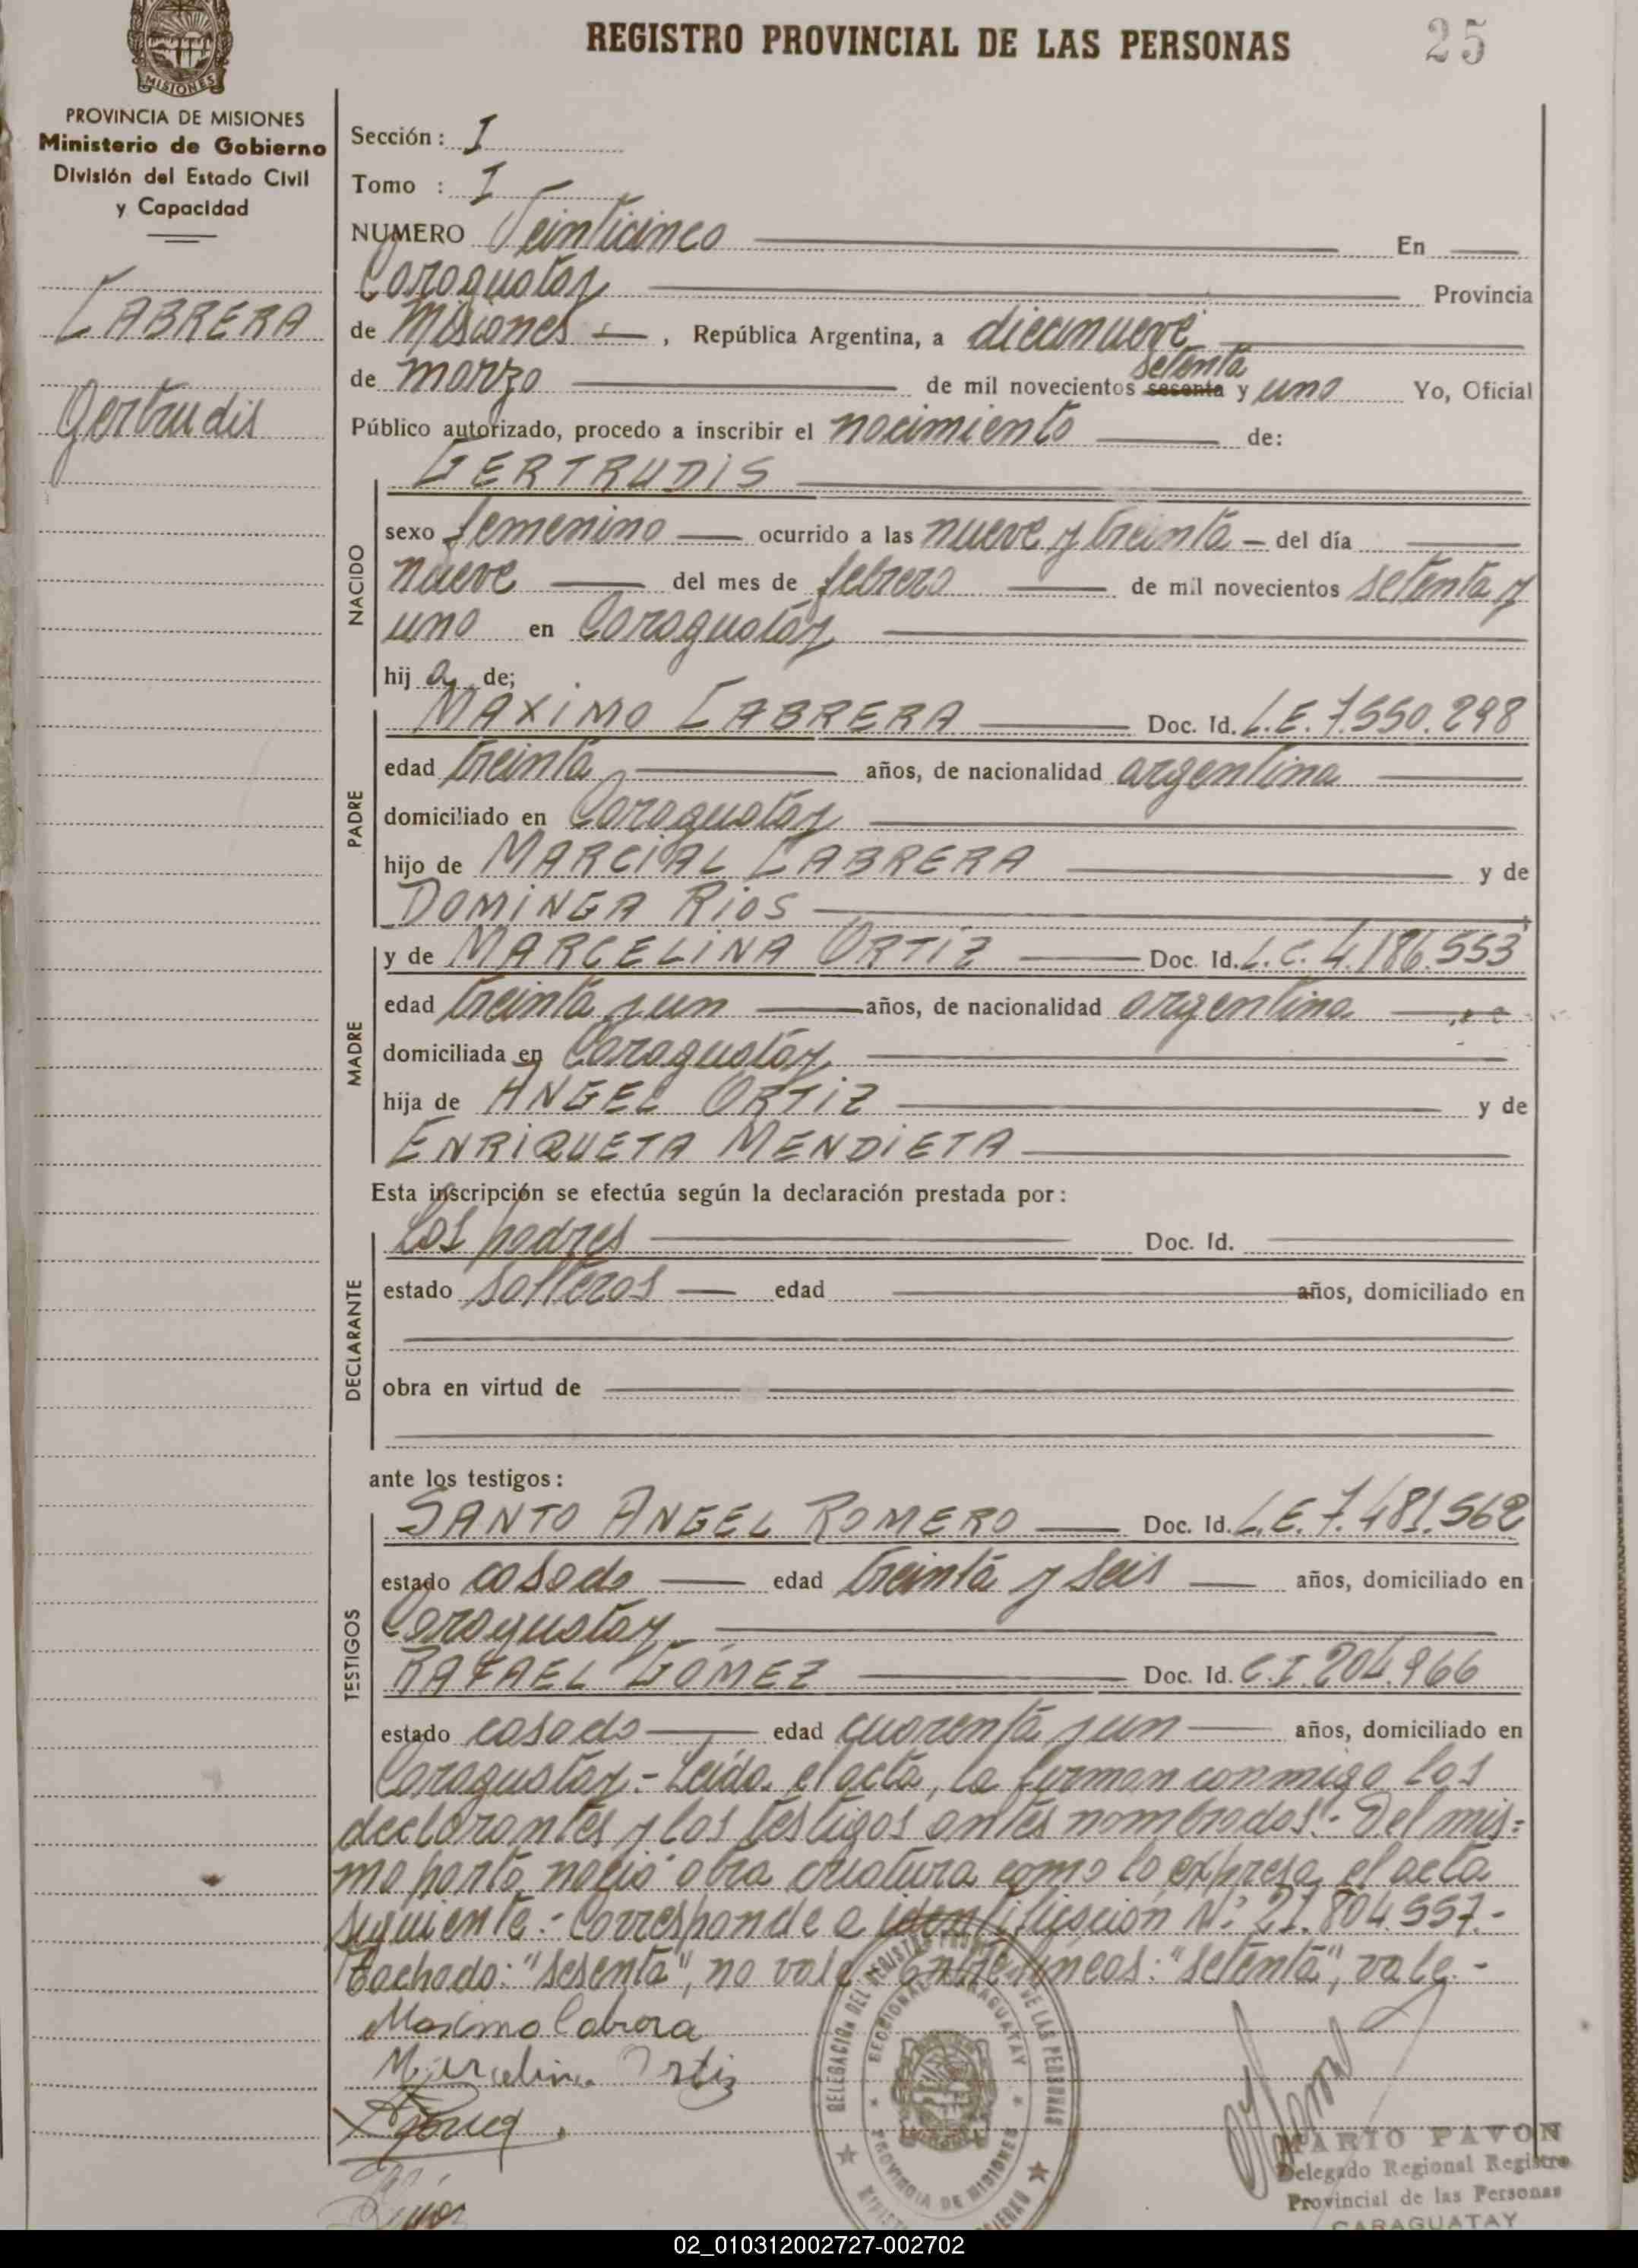 REGISTRO PROVINCIAL DE LAS PERSONAS
25
MISIONES
PROVINCIA DE MISIONES
Ministerio de Gobierno
División del Estado Civil
y Capacidad
CABRERA
Gertrudis
Sección: I
Tomo : I
NUMERO Veinticinco En
Caraguatay Provincia
de Misiones, República Argentina, a diecinueve
setenta
de marzo de mil novecientos sesenta y uno Yo, Oficial
Público autorizado, procedo a inscribir el nacimiento de:
GERTRUDIS
NACIDO
sexo femenino ocurrido a las nueve y treinta del día
nueve del mes de febrero de mil novecientos setenta y
uno en Caraguatay
hij a de;
PADRE
MAXIMO CABRERA Doc. Id. L.E. 7.550.298
edad treinta años, de nacionalidad argentina
domiciliado en Caraguatay
hijo de MARCIAL CABRERA y de
DOMINGA RIOS
MADRE
y de MARCELINA ORTIZ Doc. Id. L.C. 4.186.553
edad treinta y un años, de nacionalidad argentina
domiciliada en Caraguatay
hija de ANGEL ORTIZ y de
ENRIQUETA MENDIETA
Esta inscripción se efectúa según la declaración prestada por:
DECLARANTE
Los padres Doc. Id.
estado solteros edad años, domiciliado en
obra en virtud de
ante los testigos:
TESTIGOS
SANTO ANGEL ROMERO Doc. Id. L.E. 7.481.562
estado casado edad treinta y seis años, domiciliado en
Caraguatay
RAFAEL GÓMEZ Doc. Id. C.I 204.966
estado casado edad cuarenta y un años, domiciliado en
Caraguatay.- Leída el acta, la firman conmigo los
declarantes y los testigos antes nombrados.- Del mis=
mo parto nació otra criatura como lo expresa el acta
siguiente.- Corresponde a identificación N° 21.804.557.-
Tachado: "sesenta", no vale. Entre líneas: "setenta", vale.-
Maximo Cabrera
Marcelina Ortiz
DELEGACION DEL REGISTRO PROVINCIAL DE LAS PERSONAS
SECCIONAL CARAGUATAY
PROVINCIA DE MISIONES
MARIO PAVON
Delegado Regional Registro
Provincial de las Personas
CARAGUATAY
02_010312002727-002702